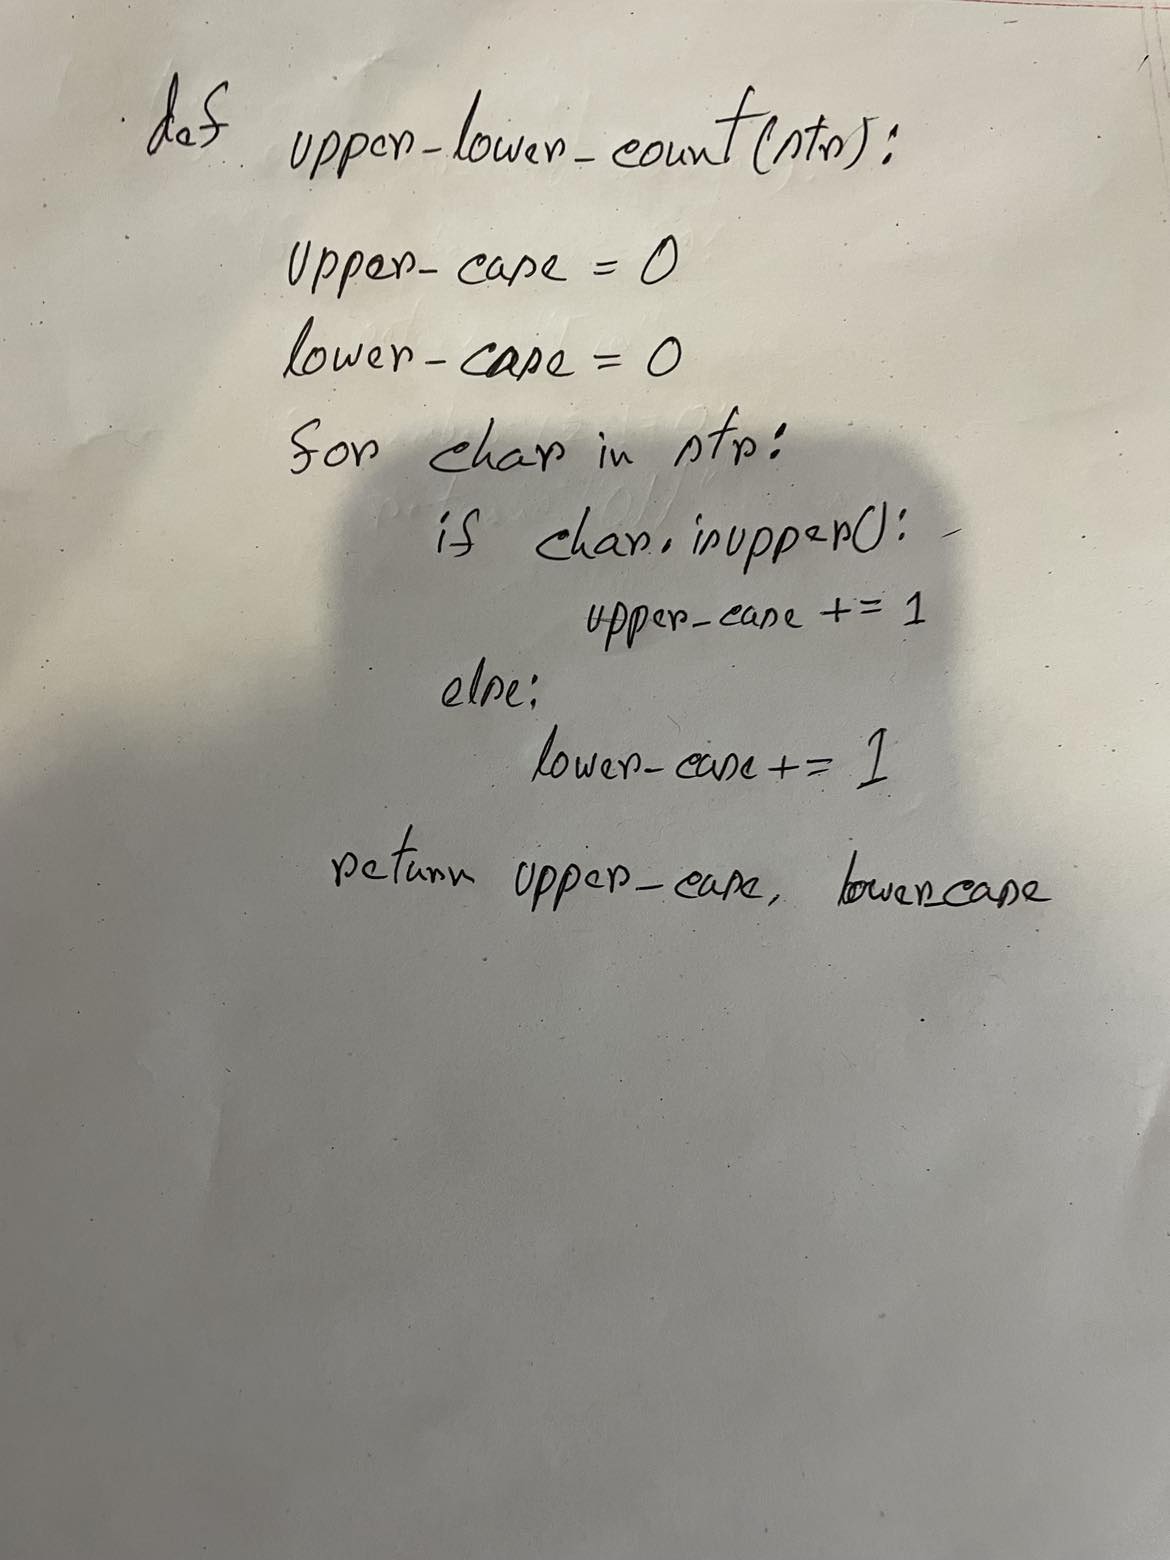 def upper_lower_count(str):
upper_case = 0
lower_case = 0
for char in str:
if char.isupper():
upper_case += 1
else:
lower_case += 1
return upper_case, lower_case